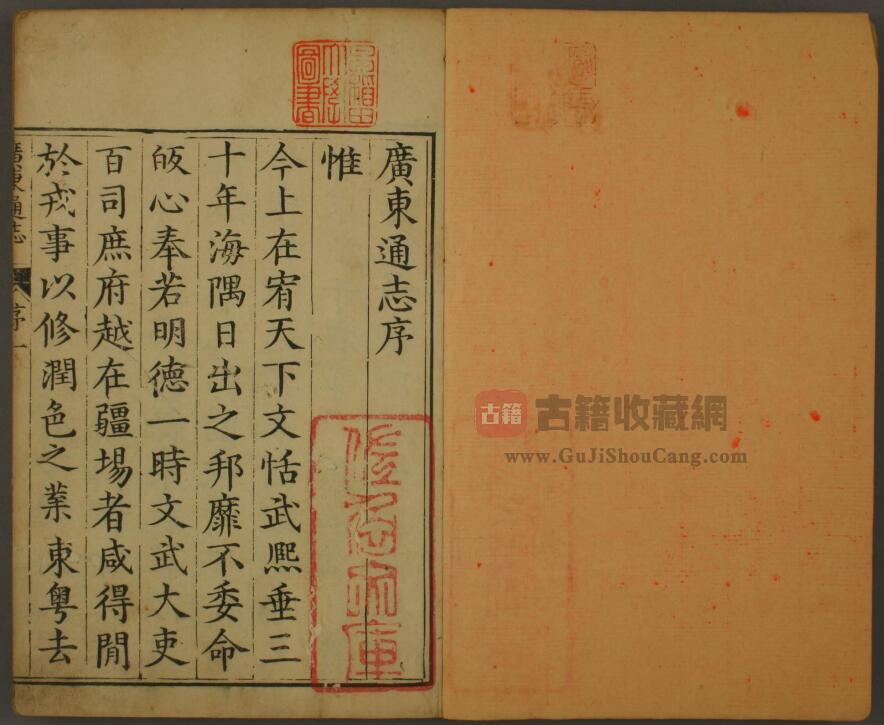 廣東通志序
惟
今上在宥天下文恬武熙垂三
十年海隅日出之邦靡不委命
皈心奉若明德一時文武大吏
百司庶府越在疆場者咸得閒
於戎事以修潤色之業東粵去
廣東通志
序
一
圖書
古籍
古籍收藏網
www.GuJiShouCang.com